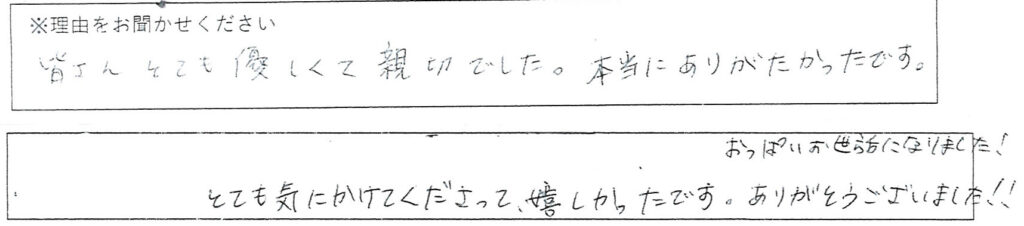 ※理由をお聞かせください
皆さんとても優しくて親切でした。本当にありがたかったです。
おっぱいお世話になりました!
とても気にかけてくださって、嬉しかったです。ありがとうございました!!